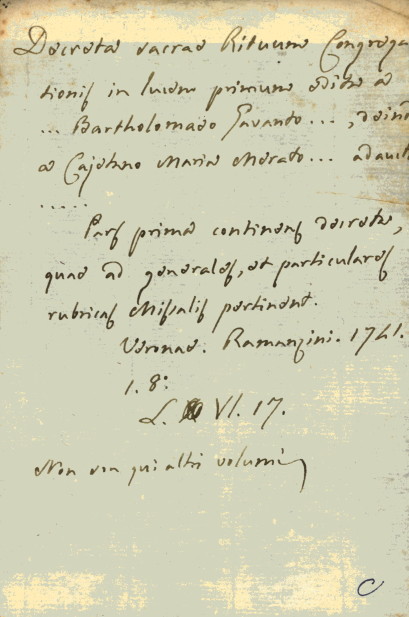 Decreta sacrae Rituum Congrega
tionis in lucem primum edita a
... Bartholomaeo Gavanto ..., dein
a Cajetano Maria Merato ... adauct
.....
Pars prima continens decreta,
quae ad generales, et particulares
rubricas Missalis pertinent.
Veronae. Ramanzini. 1741.
1. 8°.
L. VI. 17.
Non son qui altri volumi
C